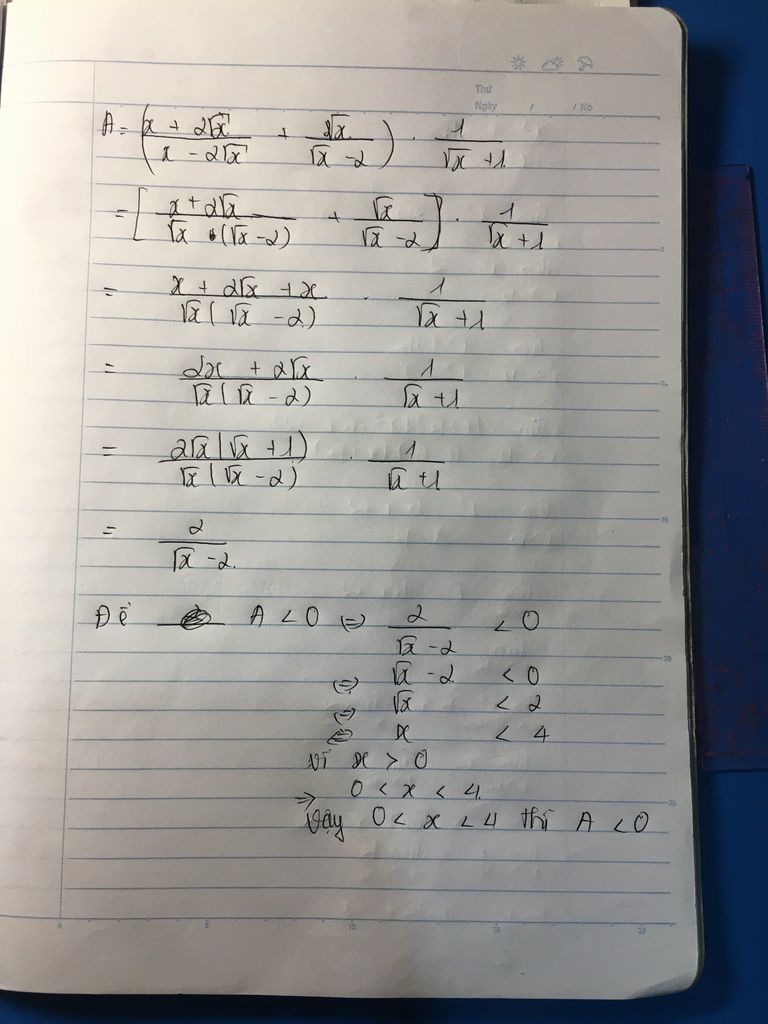 Thứ
Ngày / / No
A = (x + 2√x / x - 2√x + 2√x / √x - 2) · 1 / √x + 1
= [x + 2√x / √x · (√x - 2) + √x / √x - 2] · 1 / √x + 1
= x + 2√x + x / √x (√x - 2) · 1 / √x + 1
= 2x + 2√x / √x (√x - 2) · 1 / √x + 1
= 2√x (√x + 1) / √x (√x - 2) · 1 / √x + 1
= 2 / √x - 2.
Để A < 0 ⇔ 2 / √x - 2 < 0
⇔ √x - 2 < 0
⇔ √x < 2
⇔ x < 4
Vì x > 0
⇒ 0 < x < 4.
Vậy 0 < x < 4 thì A < 0
0 5 10 15 20